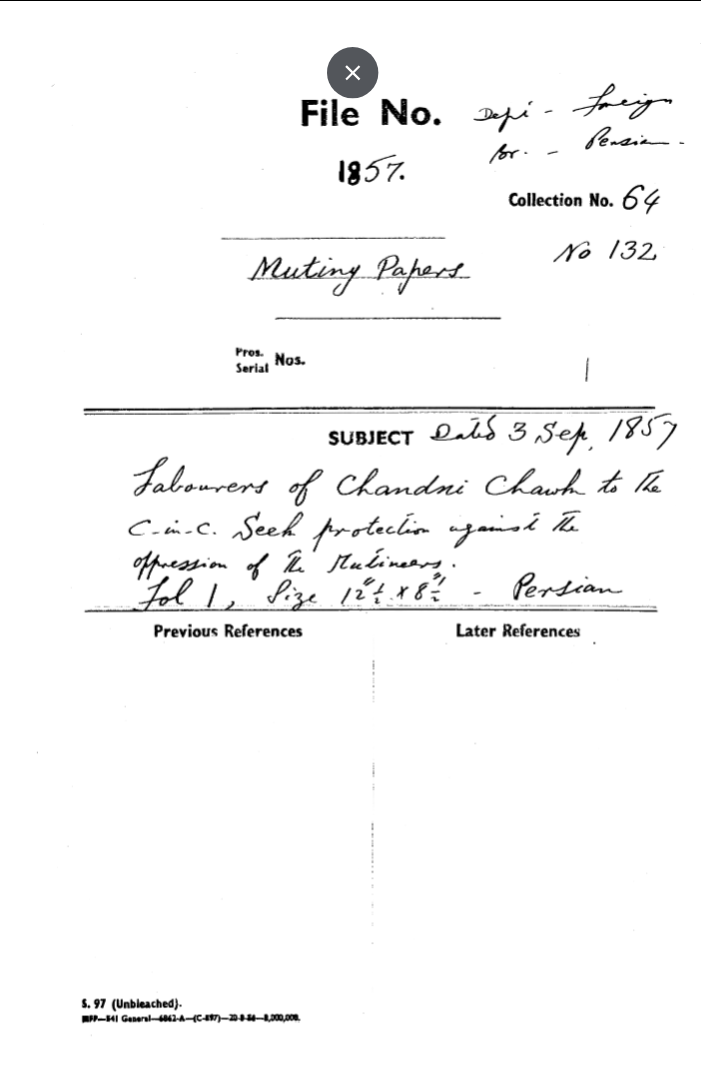 File No.
Dept - Foreign
Br. - Persian.
1857.
Collection No. 64
No 132
Mutiny Papers
Pros.
Serial Nos.
1
SUBJECT Dated 3 Sep. 1857
Labourers of Chandni Chawk to the
C-in-C. Seek protection against the
oppression of the Mutineers.
Fol 1, Size 12½" x 8½" - Persian
Previous References
Later References
S. 97 (Unbleached).
General—6062-A—(C-897)